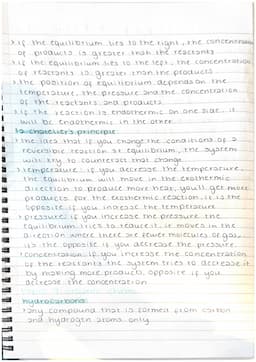 › if the equilibrium lies to the right, the concentration
of products is greater than the reactants
› if the equilibrium lies to the left, the concentration
of reactants is greater than the products
› the position of equilibrium depends on the
temperature, the pressure and the concentration
of the reactants and products
› if the reaction is endothermic on one side, it
will be exothermic in the other
le chatelier's principle
› the idea that if you change the conditions of a
reversible reaction at equilibrium, the system
will try to counteract that change
› temperature: if you decrease the temperature,
the equilibrium will move in the exothermic
direction to produce more heat, you'll get more
products for the exothermic reaction, it is the
opposite if you increase the temperature
› pressure: if you increase the pressure the
equilibrium tries to reduce it, moves in the
direction where there are fewer molecules of gas,
its the opposite if you decrease the pressure
› concentration: if you increase the concentration
of the reactants the system tries to decrease it
by making more products, opposite if you
decrease the concentration
hydrocarbons
› any compound that is formed from carbon
and hydrogen atoms only